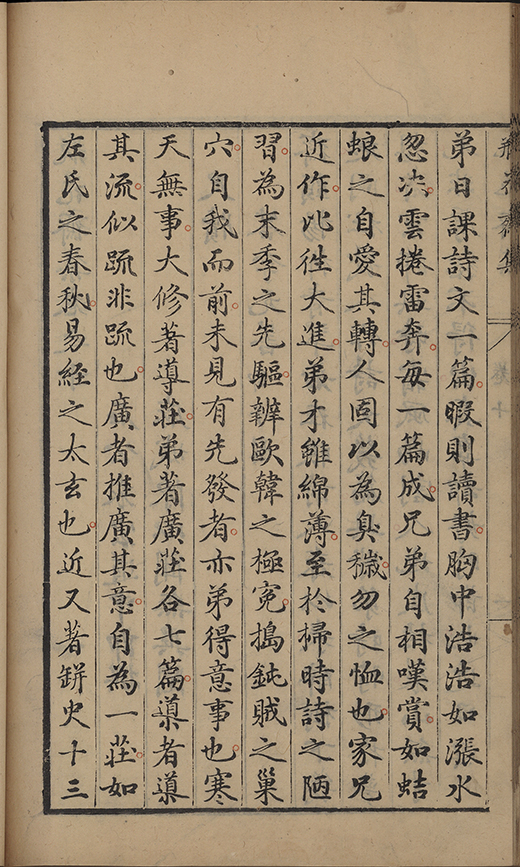 弟日課詩文一篇暇則讀書胸中浩浩如漲水
忽决雲捲雷奔每一篇成兄弟自相嘆賞如蛣
蜋之自愛其轉人固以為臭穢勿之恤也家兄
近作比徃大進弟才雖綿薄至於掃時詩之陋
習為末季之先驅辨歐韓之極寃搗鈍賊之巢
穴自我而前未見有先發者亦弟得意事也寒
天無事大修著導莊弟著廣莊各七篇導者導
其流似䟽非䟽也廣者推廣其意自為一莊如
左氏之春秋易經之太玄也近又著缾史十三